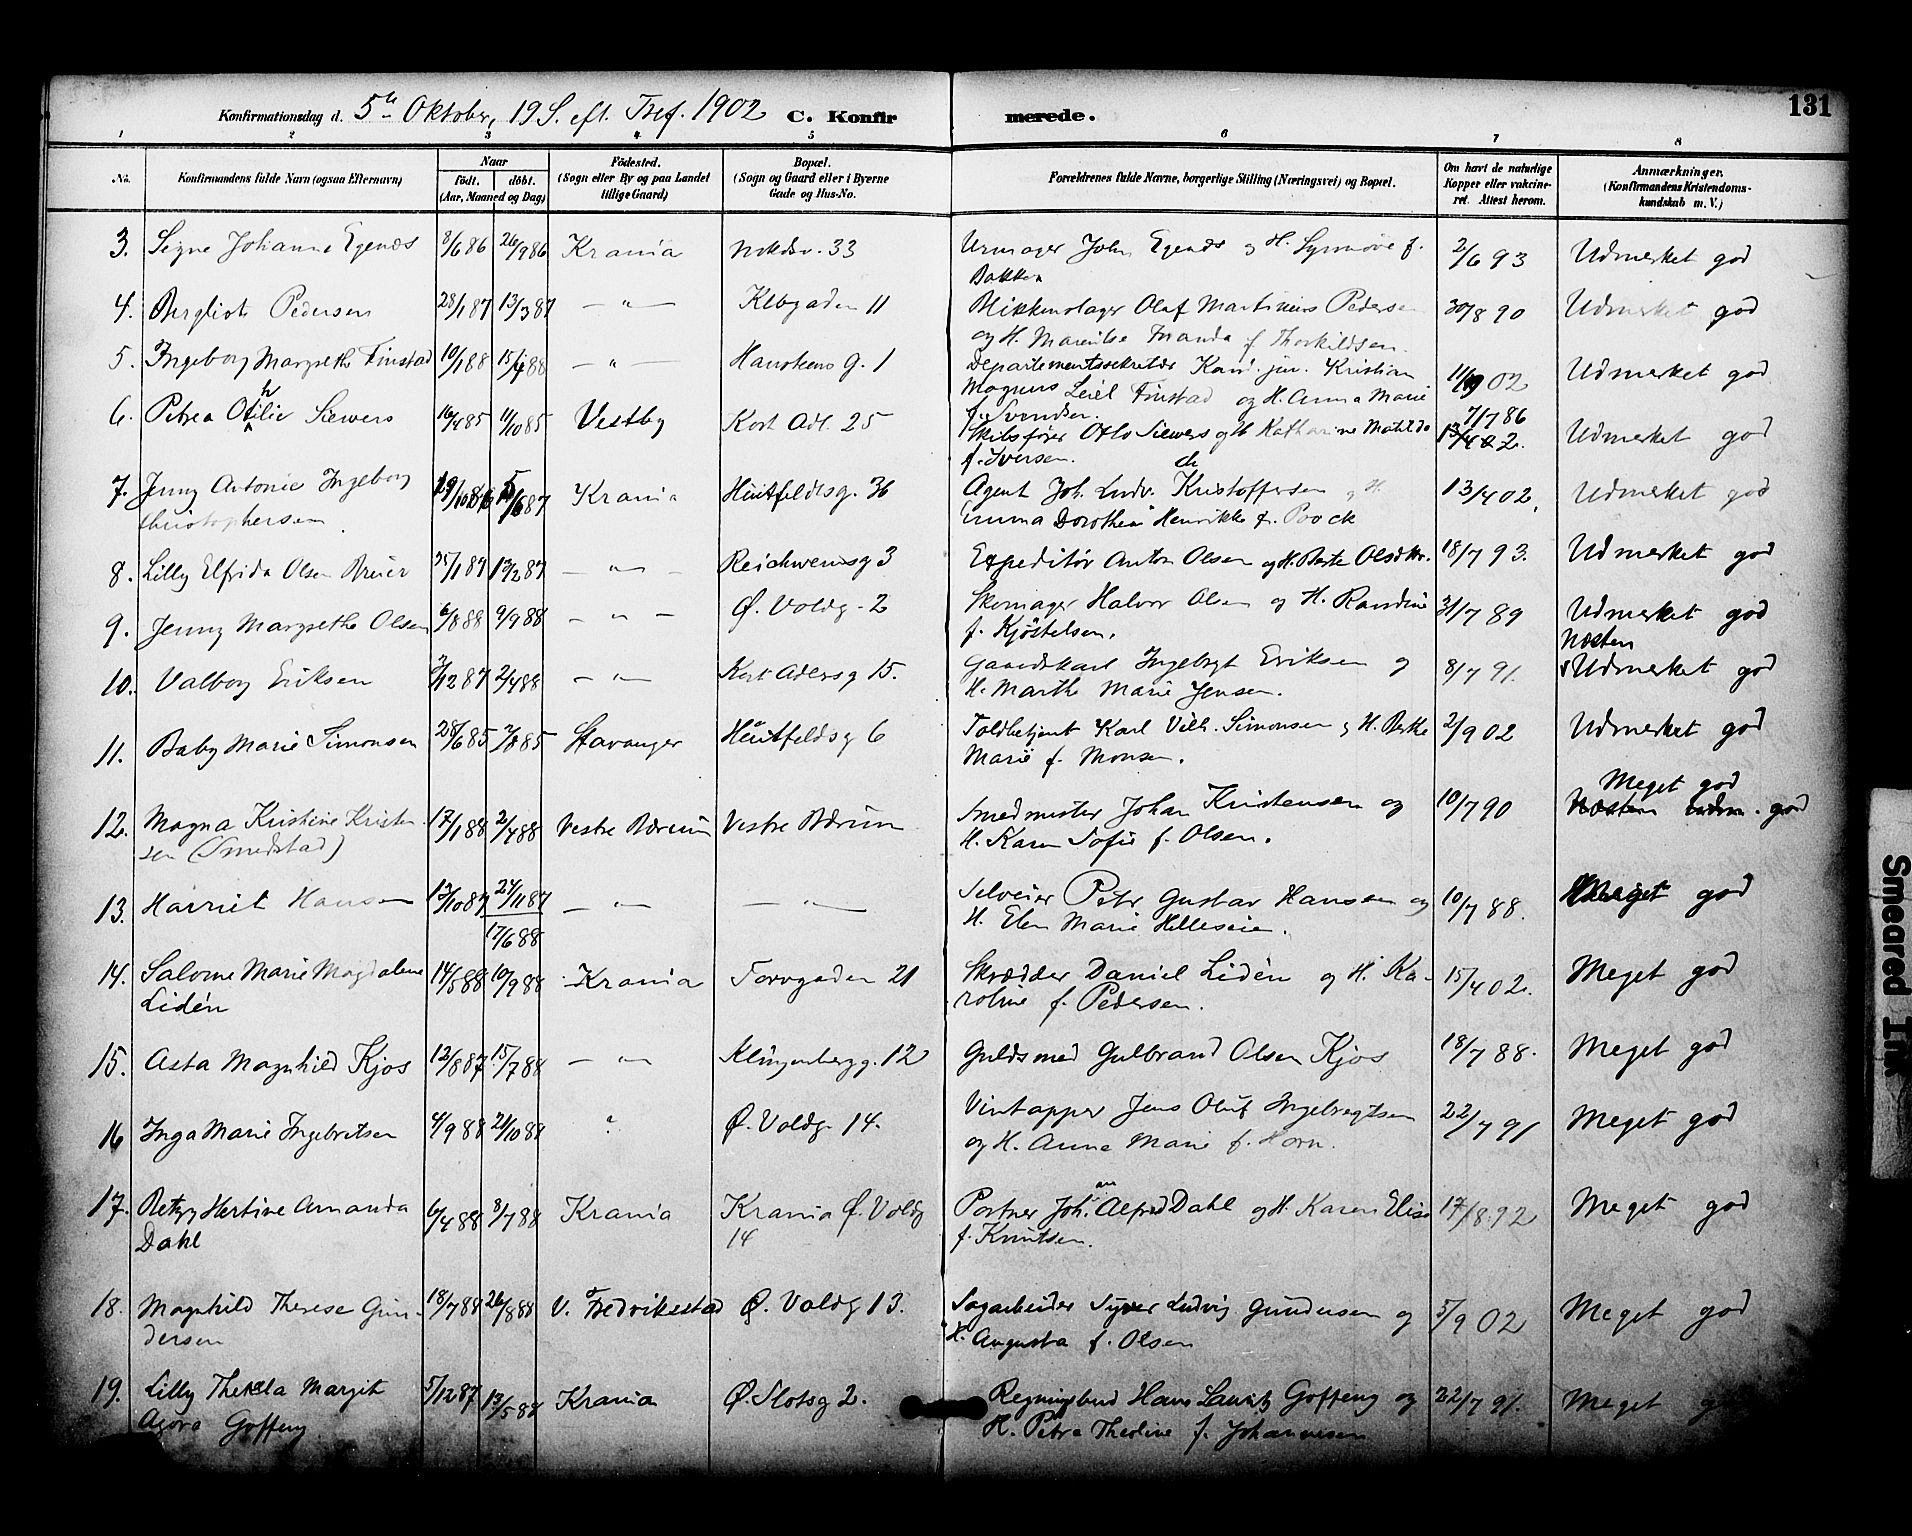 Konfirmationsdag d. 5te Oktober, 19 S. eft. Tref. 1902 C. Konfir merede. 131
1 2 3 4 5 6 7 8
No. Konfirmandens fulde Navn (ogsaa Efternavn) Naar födt. döbt. (Aar, Maaned og Dag) Födested. (Sogn eller By og paa Landet tillige Gaard) Bopæl. (Sogn og Gaard eller i Byerne Gade og Hus-No. Forældrenes fulde Navne, borgerlige Stilling (Næringsvei) og Bopæl. Om havt de naturlige Kopper eller vakcineret. Attest herom. Anmærkninger. (Konfirmandens Kristendomskundskab m. V.)
3. Signe Johanne Egenæs 8/6 86 26/9 86 Krania 33 Urmager John Egenæs og H. Synnöve f. Bakken 2/6 93 Udmerket god
4. Bergliot Pedersen 28/1 87 13/3 87 — " — 11 Blikkenslager Olaf Martinius Pedersen og H. f. Thorkildsen. 30/8 90 Udmerket god
5. Ingeborg Margrethe Finstad 10/1 88 — " — g. 1 Departementssekretær Kand. jur. Kristian Magnus Finstad og H. Anna Marie f. Svendsen. 02 Udmerket god
6. Petrea Othilie Siewers 16/4 85 11/10 85 Vestby Kort Adl. 25 Skibsfører Otto Siewers og H. Katharine Matilde f. Iversen. 7/7 86 Udmerket god
7. Jenny Antonie Ingeborg Christophersen Krania Huitfeldtsg. 36 Agent Joh. Ludv. Kristoffersen og H. Emma Dorothea Henrikke f. Poock 13/4 02. Udmerket god
8. Lilly Elfrida Olsen 25/1 87 13/2 87 — " — Reichweinsg 3 Expeditör Anton Olsen og H. Berte Olsdtr. 18/7 93. Udmerket god
9. Jenny Margrethe Olsen 6/8 88 9/9 88 — " — Ø. Voldg. 2 Skomager Halvor Olsen og H. Randine f. Kjöstelsen. 31/7 89 Udmerket god
10. Valborg Eriksen 2/4 88 — " — Kort Adlersg 15. Gaardskarl Ingebrgt Eriksen og H. Marthe Marie Jensen. 8/7 91. Næsten Udmerket god
11. Baby Marie Simonsen 28/6 85 Stavanger Huitfeldsg 6 Toldbetjent Karl Vilh. Simonsen og H. Berthe Marie f. Monsen. 2/9 02 Udmerket god
12. Magna Kristine Kristensen (Smedstad) 17/1 88 2/4 88 Vestre Bærum Vestre Bærum Smedmester Johan Kristensen og H. Karen Sofie f. Olsen. 10/7 90 Meget god Næsten udm. god
13. Harriet Hansen 13/10 87 24/11 87 17/6 88 — " — — " — Selveier Peter Gustav Hansen og H. Elen Marie Helleseie. 10/7 88. Meget god
14. Salome Marie Magdalene Lidén 14/5 88 10/9 88 Krania Torvgaden 21 Skrædder Daniel Lidén og H. Karoline f. Pedersen. 15/4 02. Meget god
15. Asta Magnhild Kjos 12/8 87 15/7 88 — " — Klingenbergg. 12 Guldsmed Gulbrand Olsen Kjos 18/7 88. Meget god
16 Inga Marie Ingebretsen 4/9 88 21/10 88 " Ø. Voldg. 14. Vintapper Jens Oluf Ingebregtsen og H. Anna Marie f. Horn. 22/7 91 Meget god
17. Betzy Hertine Amanda Dahl 6/4 88 8/7 88 Krania Krania Ø. Voldg 14 Portner Johan Alfred Dahl og H. Karen Elise f. Knutsen. 17/8 92 Meget god
18. Magnhild Therese Gundersen 18/7 88 26/8 88 V. Fredrikstad Ø. Voldg 13. Sagarbeider Syver Ludvig Gundersen og H. Augusta f. Olsen 5/9 02 Meget god
19. Lilly Thekla Margit Agora Goffeng 5/12 87 13/5 88 Krania Ø. Slotsg 2. Regningsbud Hans Lauritz Goffeng og H. Petra Theoline f. Johannesen 22/7 91. Meget
Smeared Ink